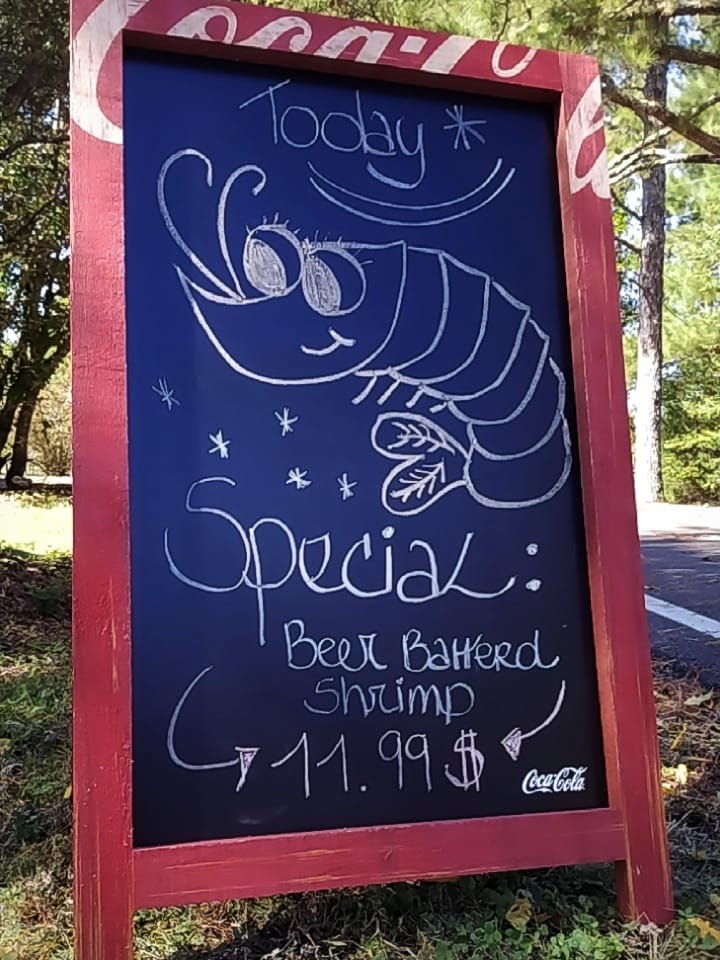 Coca-Cola
Today *
Special:
Beer Batterd
Shrimp
11.99 $
Coca-Cola